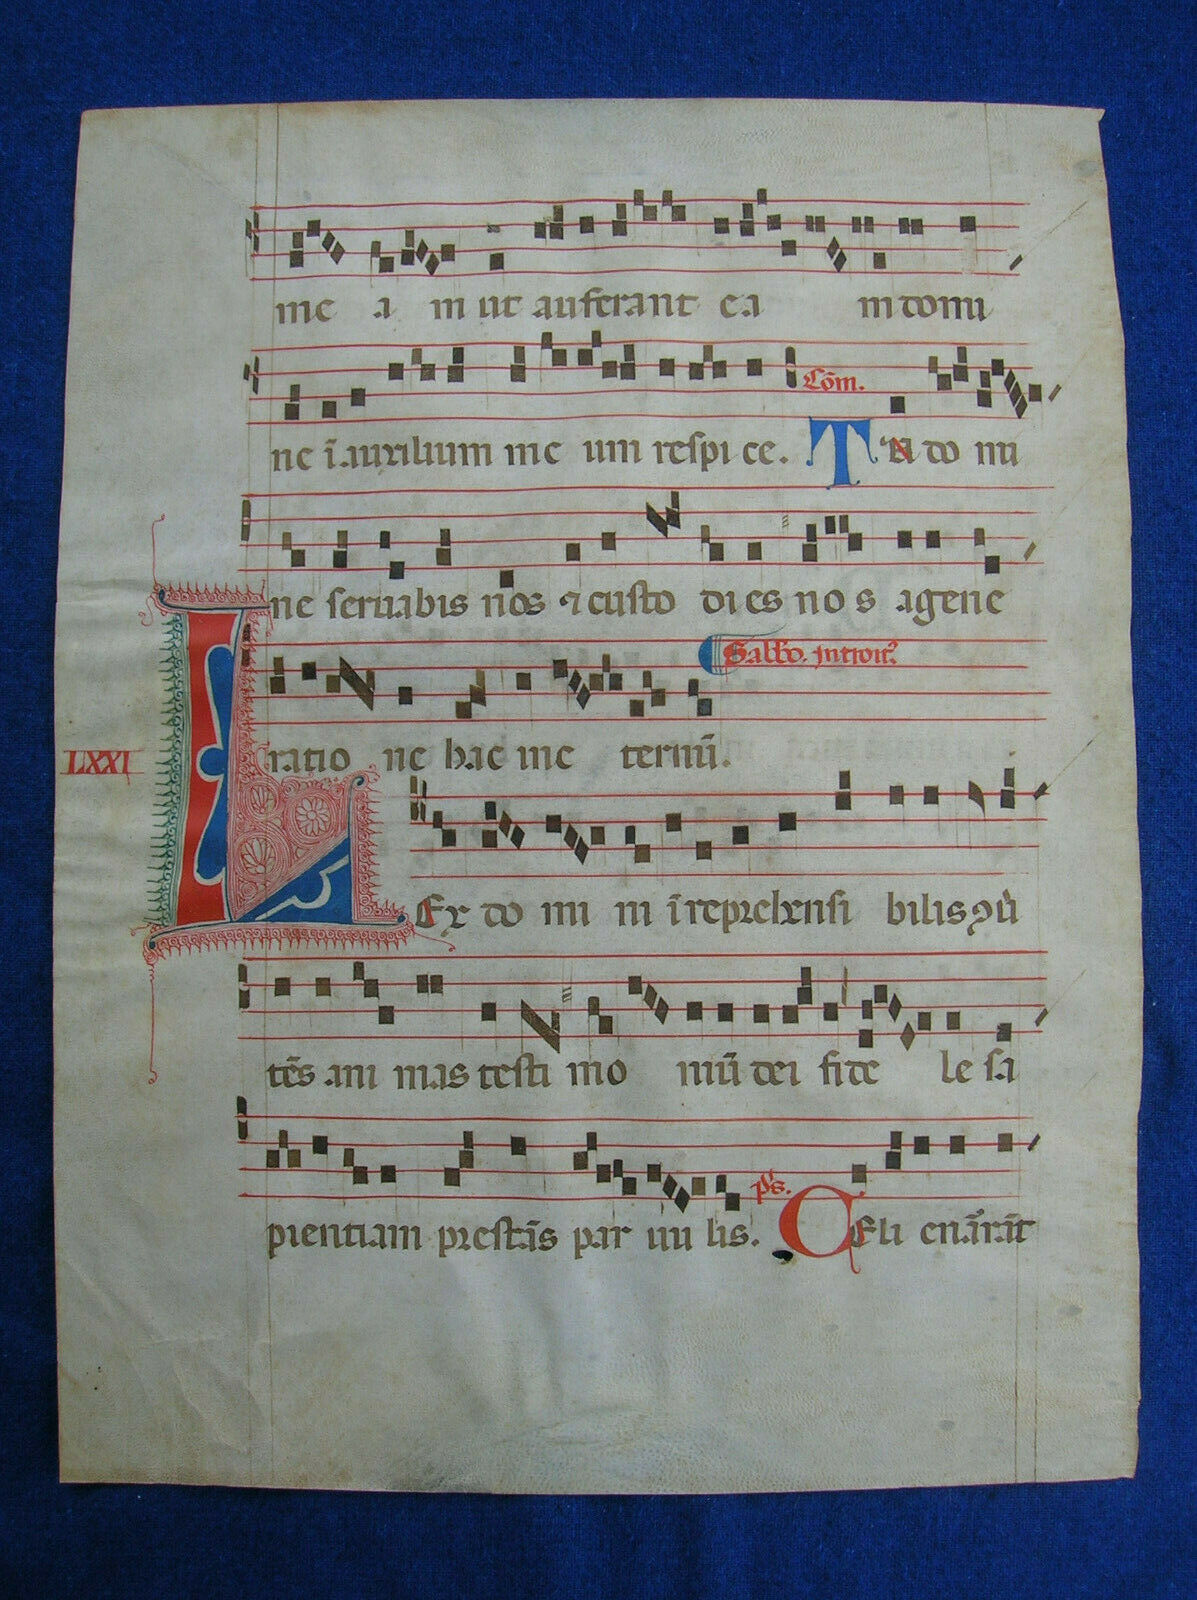 me a m ut auferant ea m domi
ne ī auxilium me um respi ce. Com̄. Tu do mi
ne seruabis nos ⁊ custo di es no s a gene
ratio ne hac in e ternū. Sabbo. introit᾽
LXXI
LEx do mi ni īreprehensi bilis ꝯū
tēs ani mas testi mo niū dei fide le sa
pientiam prestās par uu lis. ps. CEli enārāt